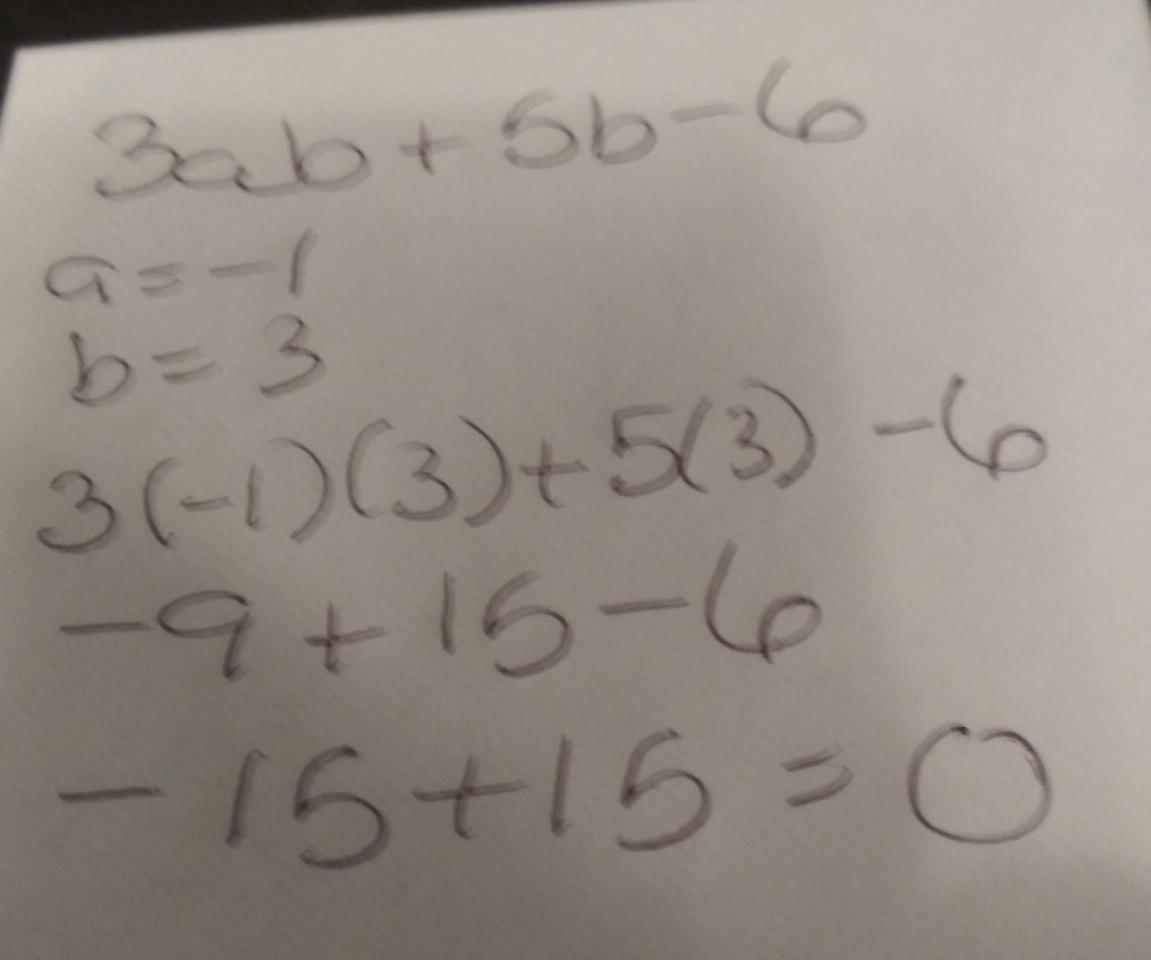 3ab + 5b - 6
a = -1
b = 3
3(-1)(3) + 5(3) - 6
-9 + 15 - 6
-15 + 15 = 0